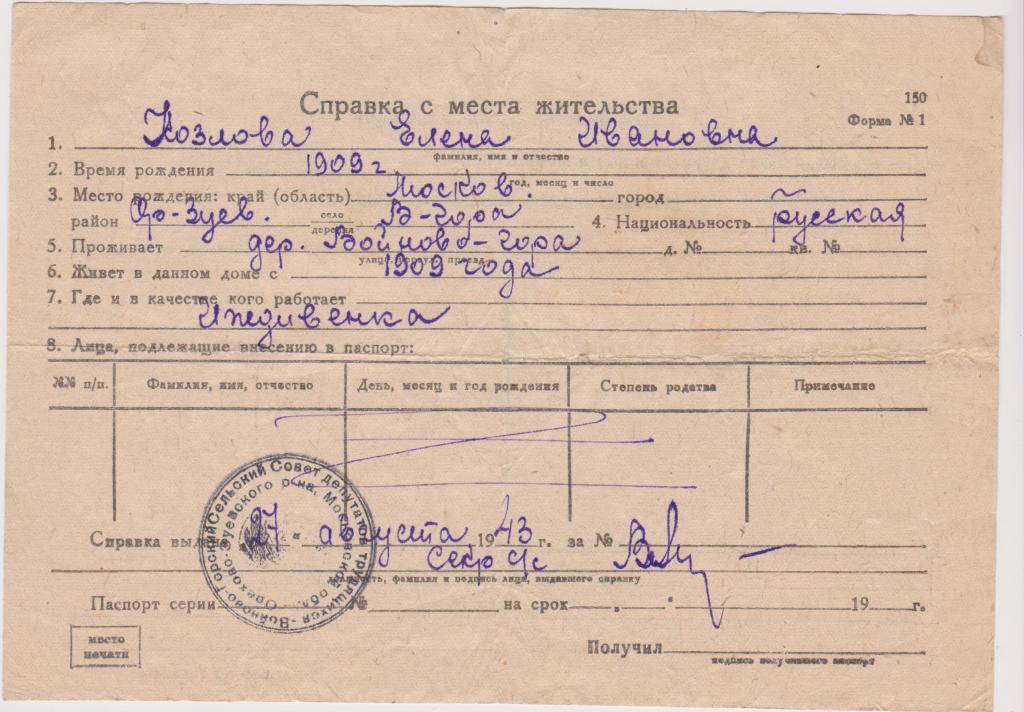 150
Справка с места жительства
Форма № 1
1. Козлова Елена Ивановна
фамилия, имя и отчество
2. Время рождения 1909 г.
год, месяц и число
3. Место рождения: край (область) Москов. город
район Ор-Зуев. село деревня В-Гора 4. Национальность русская
5. Проживает дер. Войново-гора д. № кв. №
улица, переул., проезд
6. Живет в данном доме с 1909 года
7. Где и в качестве кого работает
Иждивенка
8. Лица, подлежащие внесению в паспорт:
№№ п/п. Фамилия, имя, отчество День, месяц и год рождения Степень родства Примечание
Войново-Горский Сельский Совет депутатов трудящихся
Орехово-Зуевского р-на, Московской обл.
Справка выдана "27" августа 1943 г. за №
Секр с/с
должность, фамилия и подпись лица, выдавшего справку
Паспорт серии № на срок „ “ 19 г.
место печати
Получил
подпись получившего паспорт